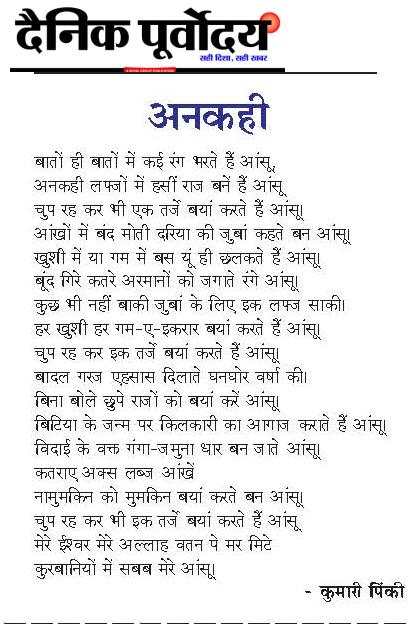 दैनिक पूर्वोदय
सही दिशा, सही खबर
अनकही
बातों ही बातों में कई रंग भरते हैं आंसू,
अनकही लफ्जों में हसीं राज बनें हैं आंसू
चुप रह कर भी एक तर्जे बयां करते हैं आंसू।
आंखों में बंद मोती दरिया की जुबां कहते बन आंसू।
खुशी में या गम में बस यूं ही छलकते हैं आंसू।
बूंद गिरे कतरे अरमानों को जगाते रंगे आंसू।
कुछ भी नहीं बाकी जुबां के लिए इक लफ्ज साकी।
हर खुशी हर गम-ए-इकरार बयां करते हैं आंसू।
चुप रह कर इक तर्जे बयां करते हैं आंसू।
बादल गरज एहसास दिलाते घनघोर वर्षा की।
बिना बोले छुपे राजों को बयां करें आंसू।
बिटिया के जन्म पर किलकारी का आगाज कराते हैं आंसू।
विदाई के वक्त गंगा-जमुना धार बन जाते आंसू।
कतराए अक्स लब्ज आंखें
नामुमकिन को मुमकिन बयां करते बन आंसू।
चुप रह कर भी इक तर्जे बयां करते हैं आंसू
मेरे ईश्वर मेरे अल्लाह वतन पे मर मिटे
कुरबानियों में सबब मेरे आंसू।
- कुमारी पिंकी